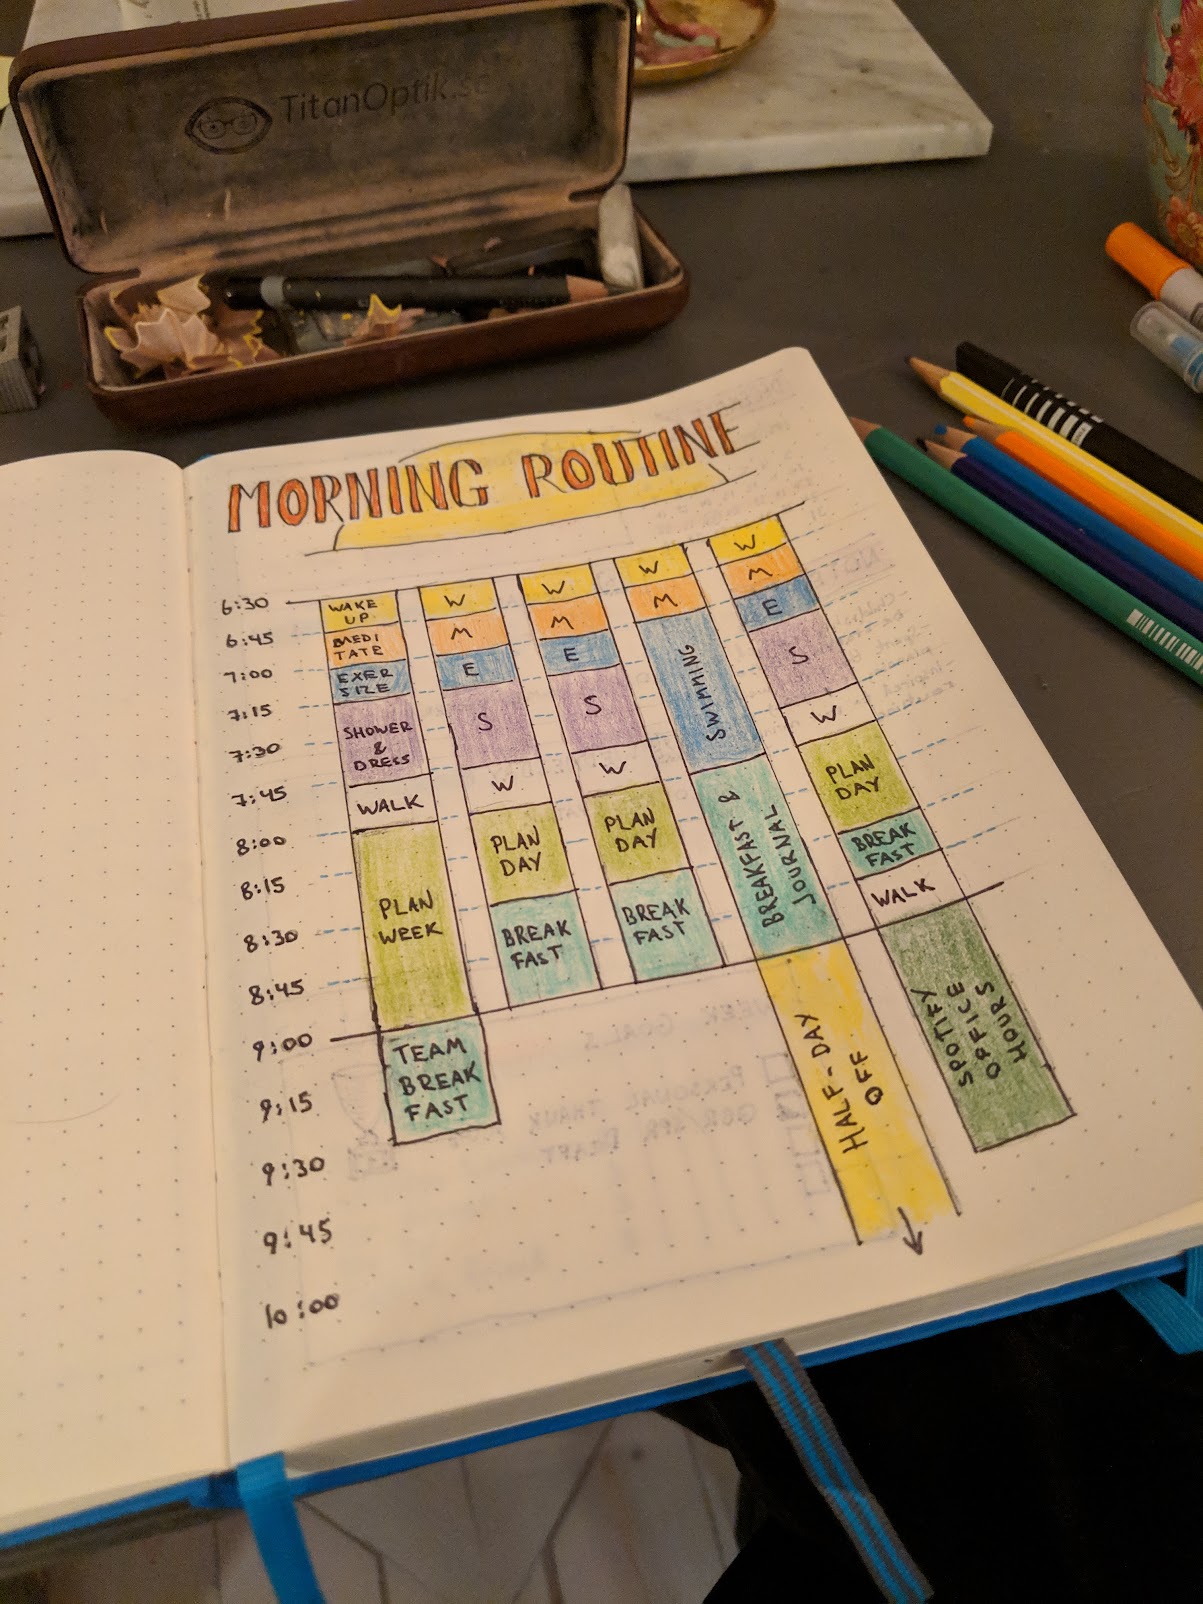 TitanOptik.se
MORNING ROUTINE
6:30
6:45
7:00
7:15
7:30
7:45
8:00
8:15
8:30
8:45
9:00
9:15
9:30
9:45
10:00
WAKE
UP
MEDI
TATE
EXER
SIZE
SHOWER
&
DRESS
WALK
PLAN
WEEK
TEAM
BREAK
FAST
W
M
E
S
W
PLAN
DAY
BREAK
FAST
W
M
E
S
W
PLAN
DAY
BREAK
FAST
W
M
SWIMMING
BREAKFAST &
JOURNAL
HALF-DAY
OFF
W
M
E
S
W
PLAN
DAY
BREAK
FAST
WALK
SPOTIFY
OFFICE
HOURS
WEEK GOALS
PERSONAL THANK